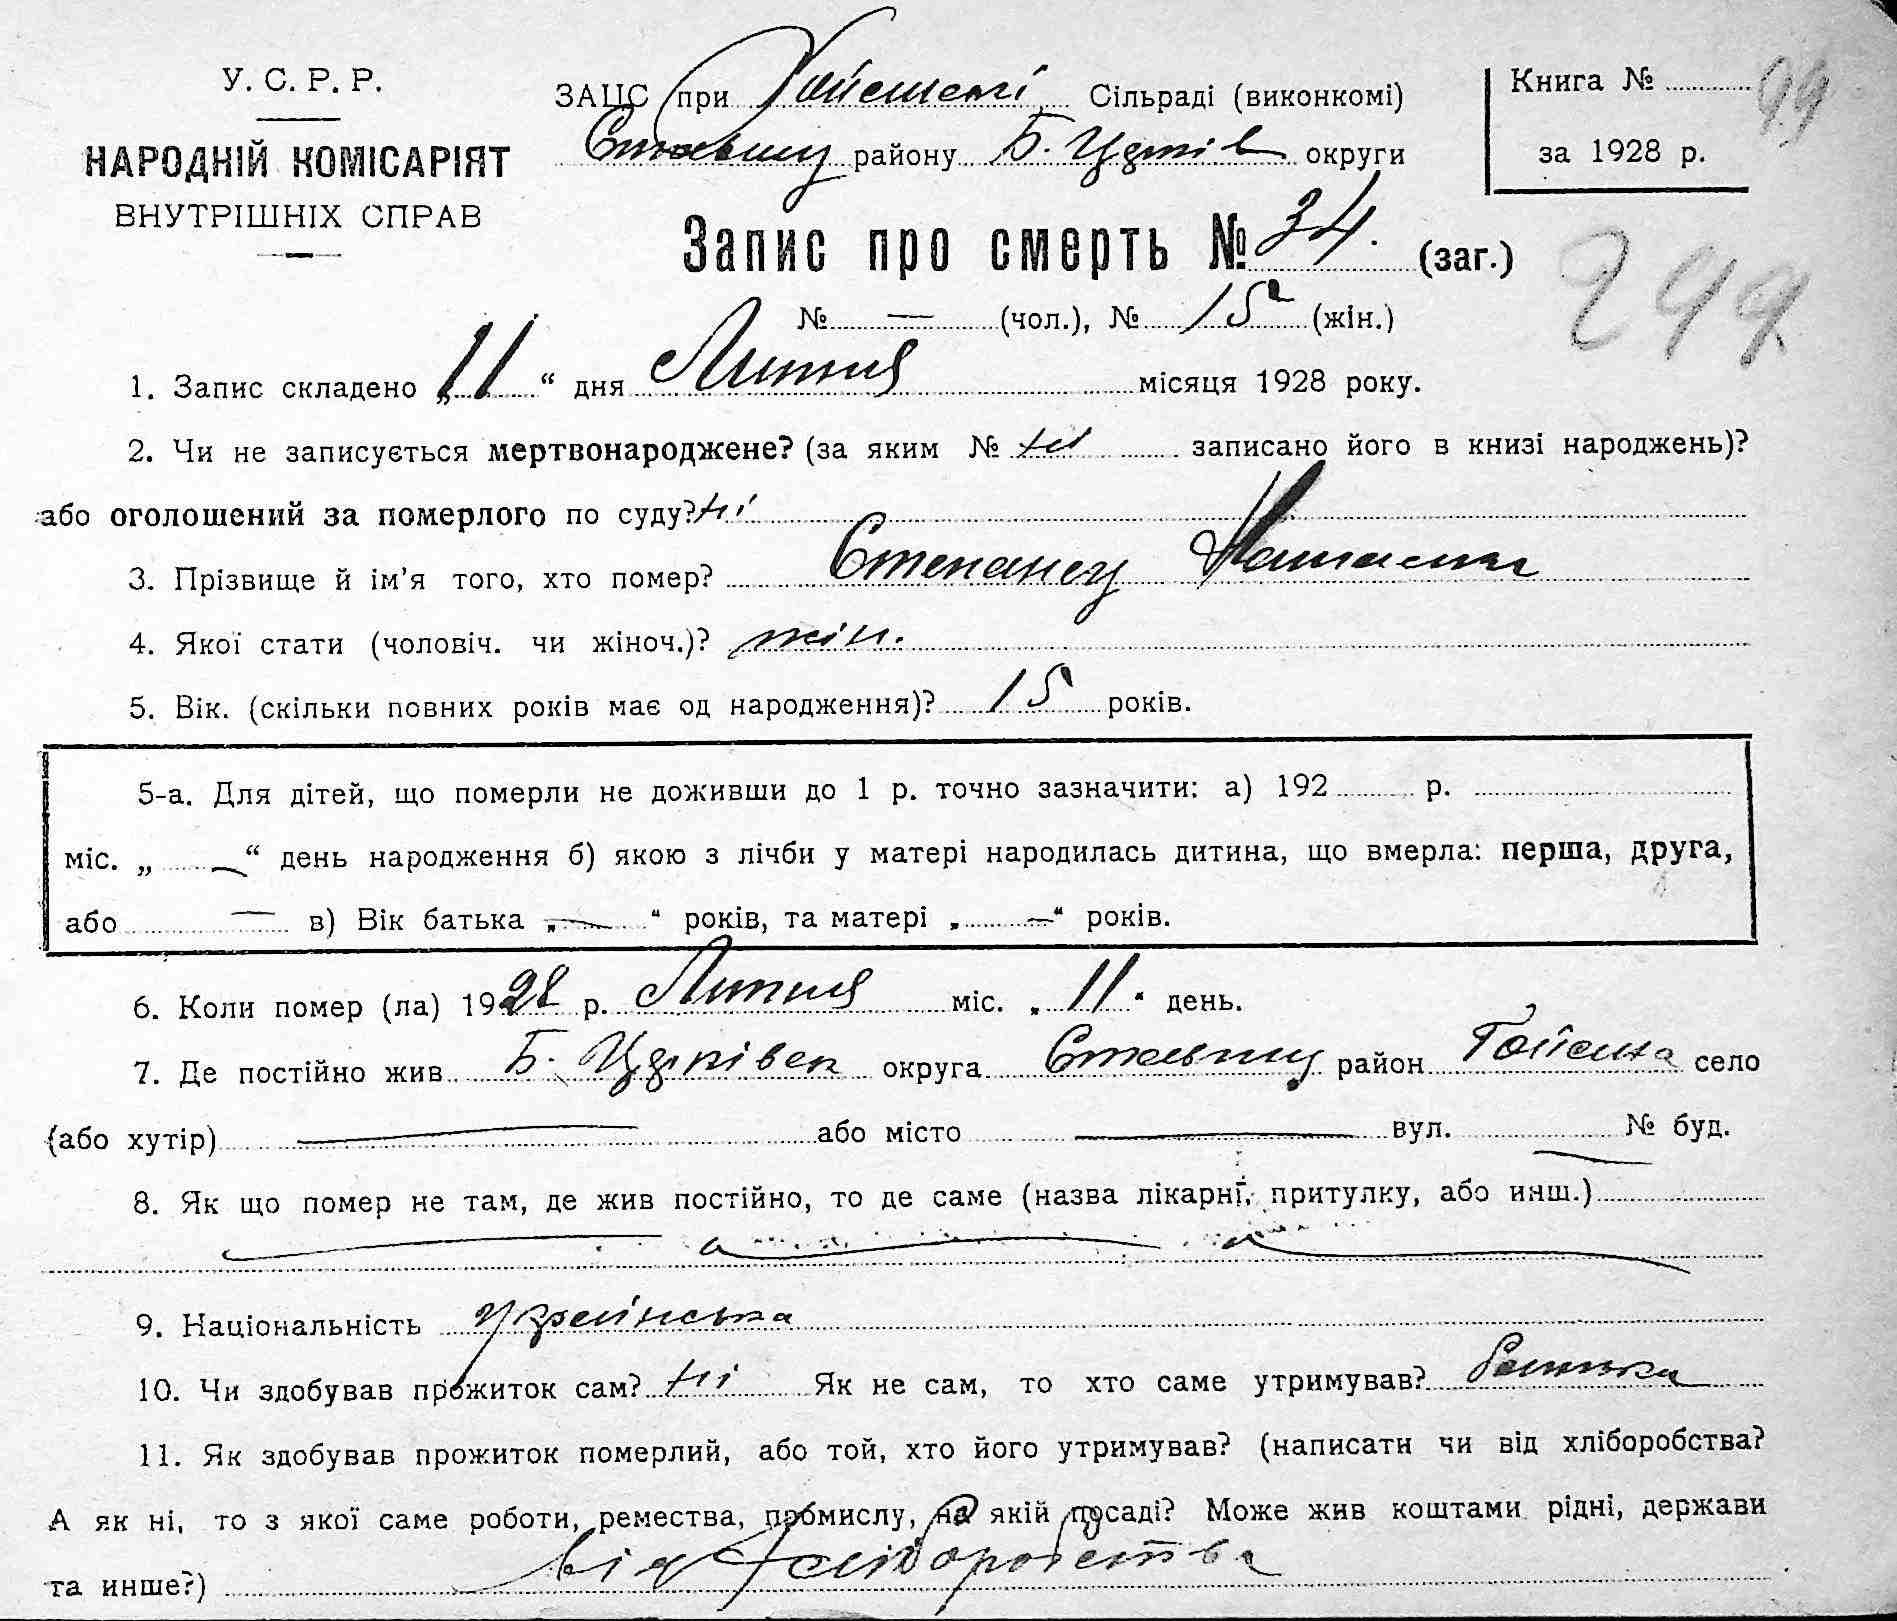 У. С. Р. Р.
НАРОДНІЙ КОМІСАРІЯТ
ВНУТРІШНІХ СПРАВ
ЗАЦС при Сільраді (виконкомі)
району Б. Церків округи
Книга № 99
за 1928 р.
Запис про смерть № 34. (заг.)
299
№ — (чол.), № 15 (жін.)
1. Запис складено „11“ дня Липня місяця 1928 року.
2. Чи не записується мертвонароджене? (за яким № ні записано його в книзі народжень)?
або оголошений за померлого по суду? ні
3. Прізвище й ім'я того, хто помер? Наталка
4. Якої стати (чоловіч. чи жіноч.)? жін.
5. Вік. (скільки повних років має од народження)? 15 років.
5-а. Для дітей, що померли не доживши до 1 р. точно зазначити: а) 192 р.
міс. „ — “ день народження б) якою з лічби у матері народилась дитина, що вмерла: перша, друга,
або — в) Вік батька „ — “ років, та матері „ — “ років.
6. Коли помер (ла) 1928 р. Липня міс. „11“ день.
7. Де постійно жив Б. Церківск округа район село
(або хутір) — або місто — вул. № буд.
8. Як що помер не там, де жив постійно, то де саме (назва лікарні, притулку, або инш.)
9. Національність українська
10. Чи здобував прожиток сам? ні Як не сам, то хто саме утримував? батька
11. Як здобував прожиток померлий, або той, хто його утримував? (написати чи від хліборобства?
А як ні, то з якої саме роботи, ремества, промислу, на якій посаді? Може жив коштами рідні, держави
та инше?) від хліборобства